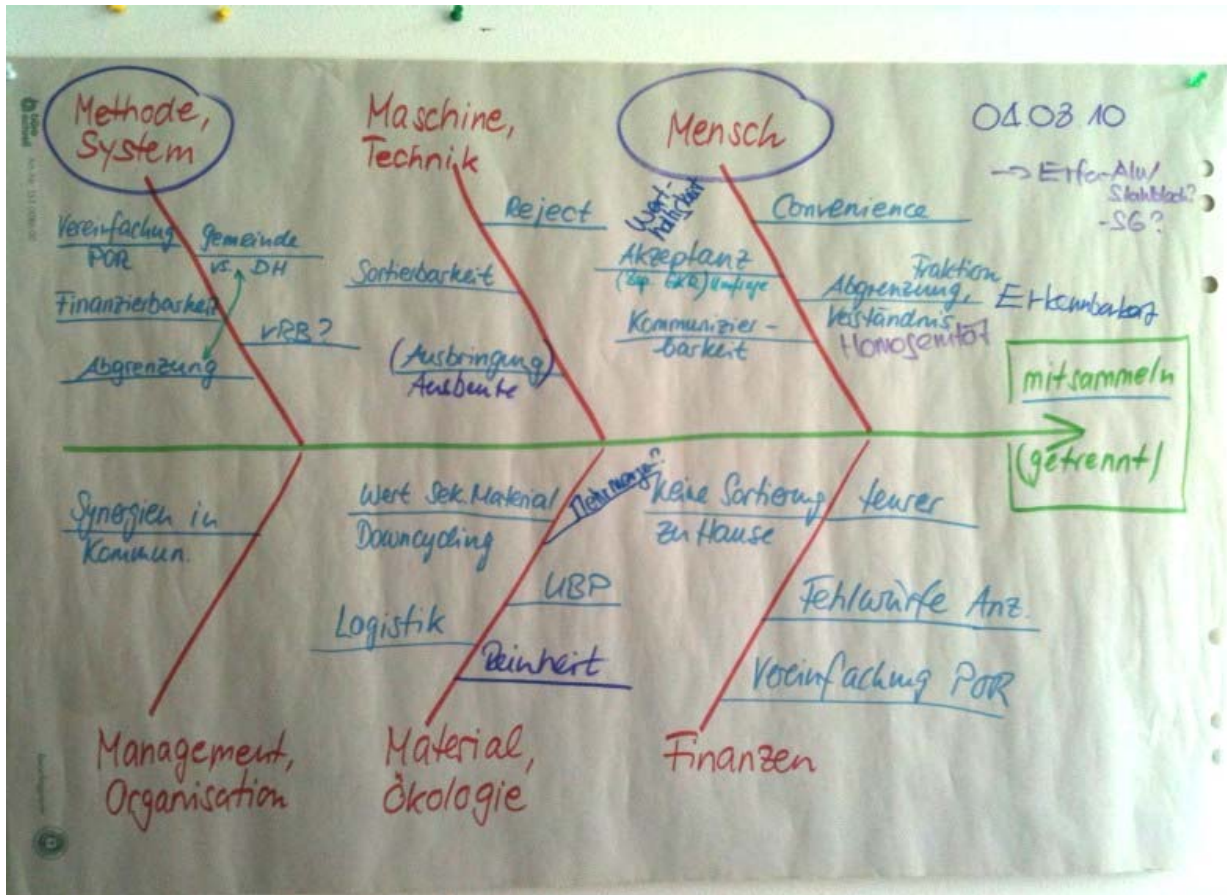 Methode,
System
Maschine,
Technik
Mensch
04.03.10
-> Erfa-Alu/
Stahlblech?
-SG?
Vereinfachung
POR
Gemeinde
vs. DH
Finanzierbarkeit
vRB?
Abgrenzung
Reject
Sortierbarkeit
(Ausbringung)
Ausbeute
Wert-
haltigkeit
Convenience
Akzeptanz
Umfrage
Kommunizier-
barkeit
Fraktion
Abgrenzung,
Verständnis
Homogenität
Erkennbarkeit
mitsammeln
(getrennt)
Synergien in
Kommun.
Wert Sek. Material
Downcycling
Mehrmenge?
UBP
Logistik
Reinheit
keine Sortierung
zu Hause
teurer
Fehlwürfe Anz.
Vereinfachung POR
Management,
Organisation
Material,
Ökologie
Finanzen